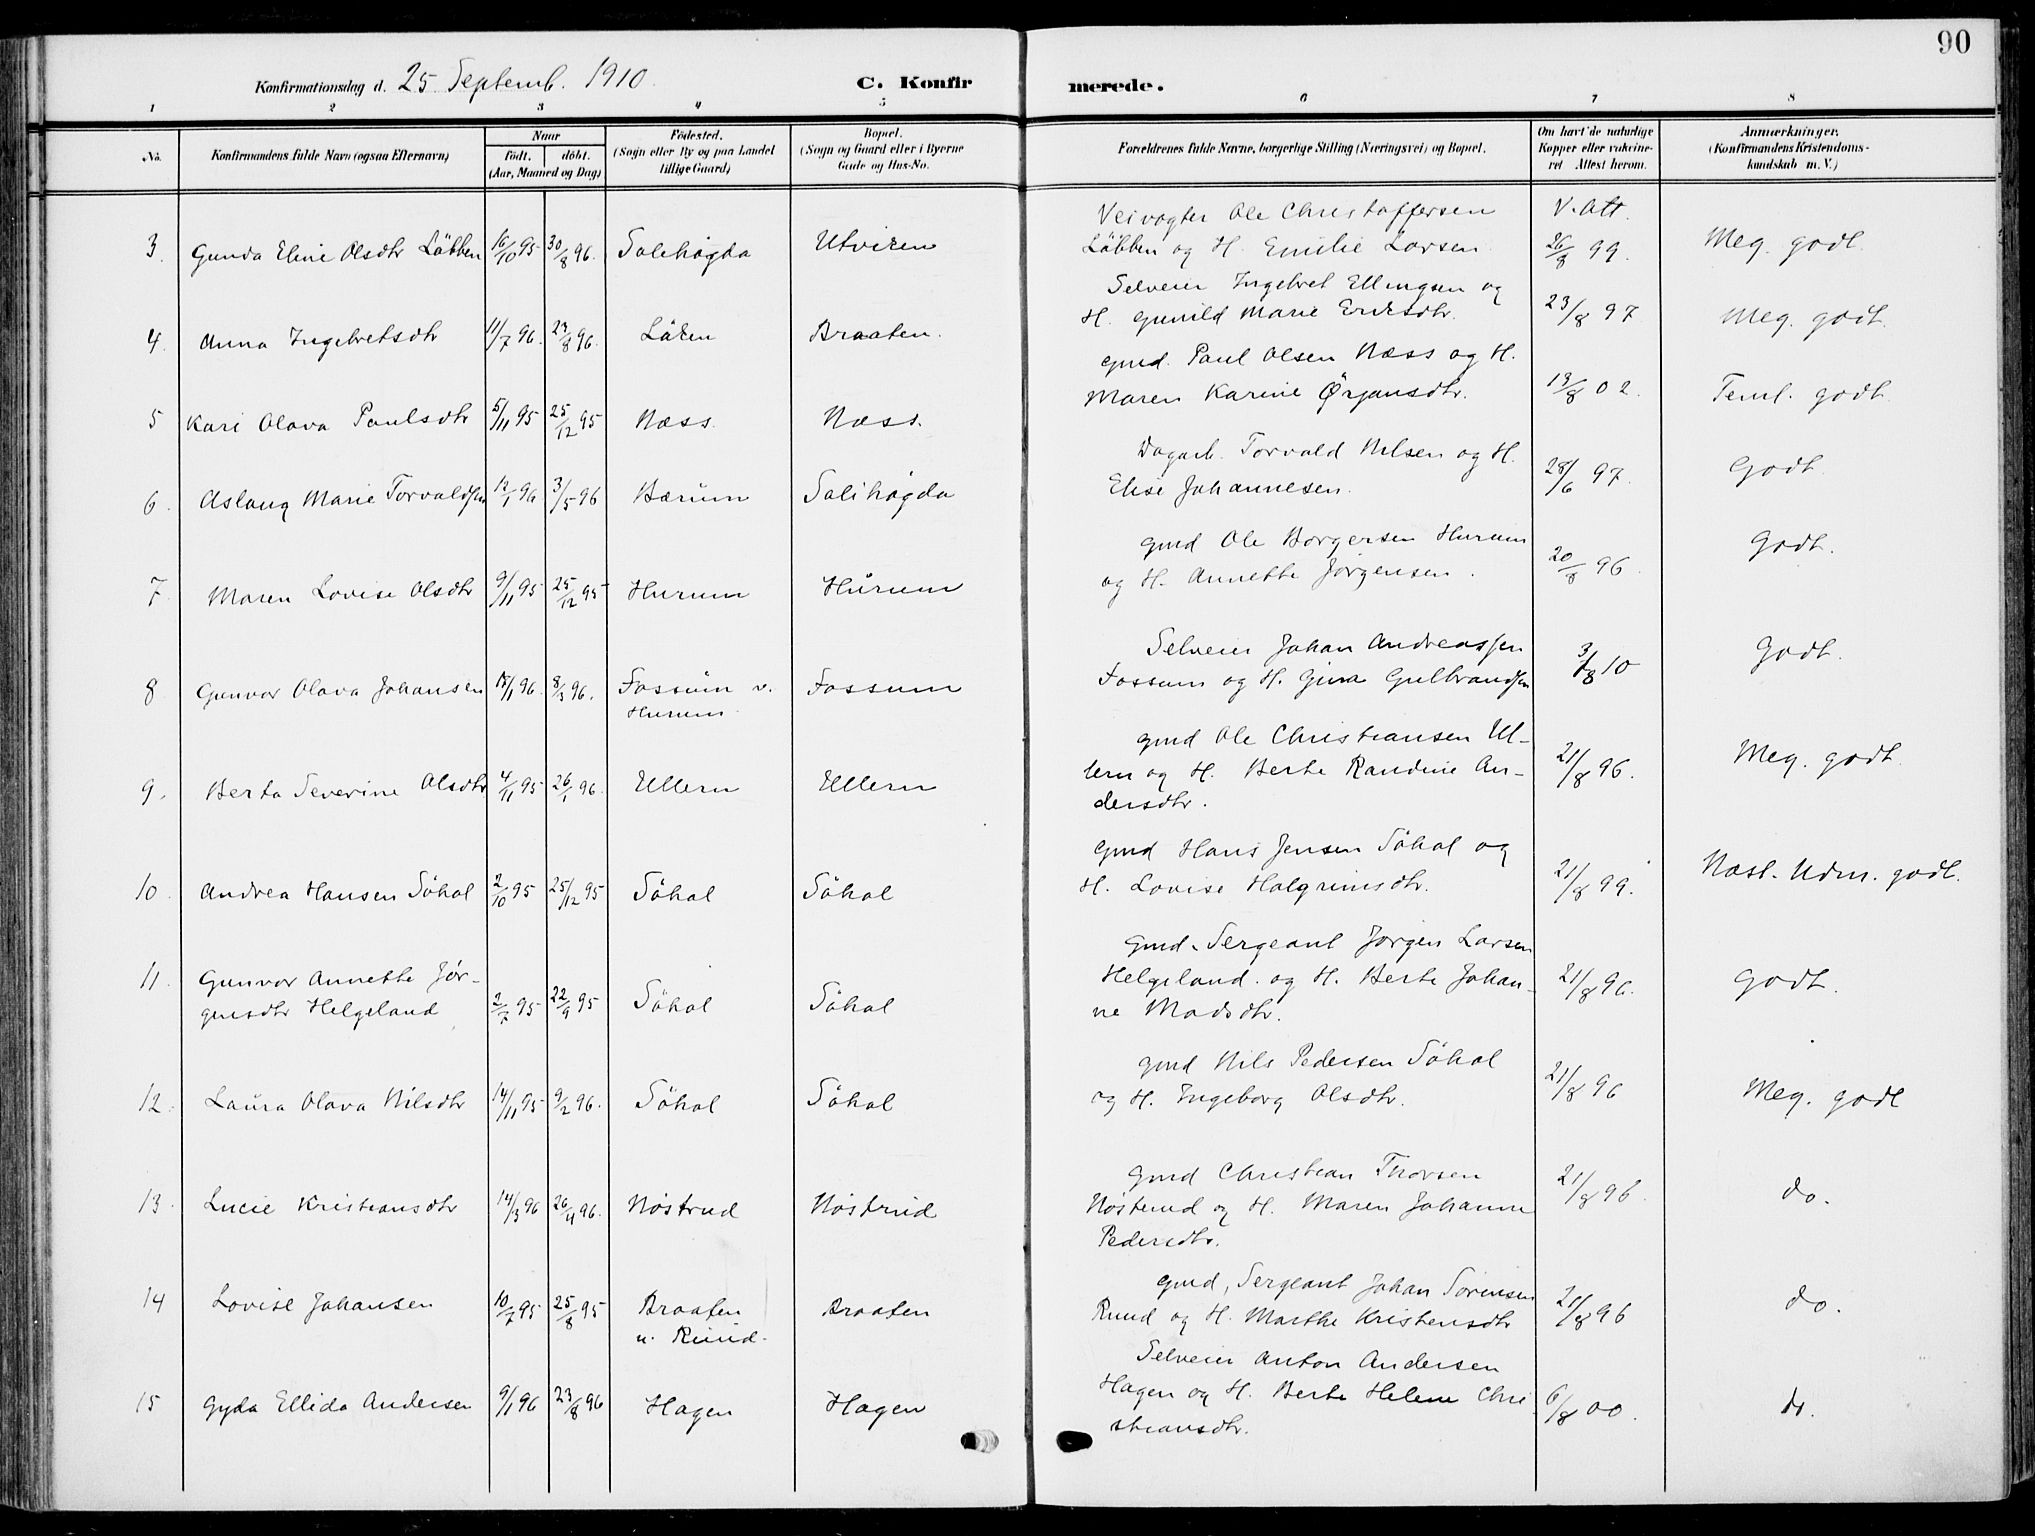 90
Konfirmationsdag d. 25 Septemb. 1910. C. Konfirmerede.
1 2 3 4 5 6 7 8
No. Konfirmandens fulde Navn (ogsaa Efternavn) Naar født. døbt. (Aar, Maaned og Dag) Fødested. (Sogn eller By og paa Landet tillige Gaard) Bopæl. (Sogn og Gaard eller i Byerne Gade og Hus-No. Forældrenes fulde Navne, borgerlige Stilling (Næringsvei) og Bopæl. Om havt de naturlige Kopper eller vakcineret Attest herom. Anmærkninger. (Konfirmandens Kristendomskundskab m. V.)
Veivogter Ole Christoffersen V. Att.
3. Gunda Eline Olsdtr Løbben 16/10 95 30/8 96. Solehøgda Utviken Løbben og H. Emilie Larsen 26/8 99. Meg. godt.
Selveier Ingebret Ellingsen og
4. Anna Ingebretsdtr 11/7 96. 23/8 96. Løken Braaten. H. Gunild Marie Eriksdtr. 23/8 97 Meg. godt.
gmd. Paul Olsen Næss og H.
5 Kari Olava Paulsdtr 5/11 95 25/12 95 Næss. Næss. Maren Karine Ørjansdtr. 13/8 02. Teml. godt
Dagarb. Torvald Nilsen og H.
6. Aslaug Marie Torvaldsen 12/1 96 3/5 96 Bærum Solihøgda Elise Johannesen. 28/6 97. Godt.
gmd Ole Borgersen Hurum
7. Maren Lovise Olsdtr 9/11 95 25/12 95 Hurum Hurum og H. Annette Jørgensen. 20/8 96. Godt.
Selveier Johan Andreassen
8 Gunvor Olava Johansen 18/1 96. 8/3 96. Fossum v. Hurum Fossum Fossum og H. Gina Gulbrandsen 3/8 10 Godt.
gmd Ole Christiansen Ul-
9. Berta Severine Olsdtr 4/11 95 26/1 96. Ullern Ullern lern og H. Berte Randine An- 21/8 96. Meg. godt.
dersdtr.
gmd Hans Jensen Søhol og
10. Andrea Hansen Søhol 2/10 95 25/12 95 Søhol Søhol H. Lovise Halgrimsdtr. 21/8 99. Næst. Udm. godt.
gmd. Sergeant Jørgen Larsen
11. Gunvor Annette Jør- Helgeland. og H. Berte Johan- 21/8 96. Godt.
gensdtr Helgeland 2/7 95 22/9 95 Søhol Søhol ne Madsdtr.
gmd Nils Pedersen Søhol
12. Laura Olava Nilsdtr 14/11 95 9/2 96. Søhol Søhol og H. Ingeborg Olsdtr. 21/8 96 Meg. godt
gmd Christian Thorsen
13. Lucie Kristiansdtr 14/3 96 26/4 96. Nøstrud Nøstrud Nøsterud og H. Maren Johanne 21/8 96. do.
Pedersdtr.
gmd, Sergeant Johan Sørensen
14 Lovise Johansen 10/7 95 25/8 95 Braaten u. Ruud. Braaten Ruud og H. Marthe Kristensdtr 21/8 96 do.
Selveier Anton Andersen
15 Gyda Ellida Andersen 9/1 96 23/8 96 Hagen Hagen Hagen og H. Berte Helene Chri 6/8 00. do.
stiansdtr.